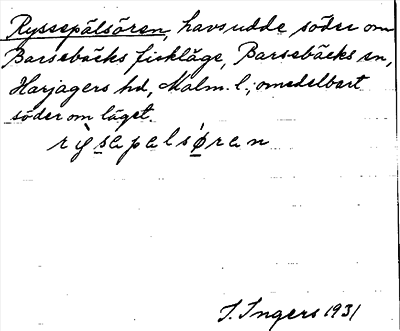 Ryssepälsören, havsudde söder om
Barsebäcks fiskläge, Barsebäcks sn,
Harjagers hd, Malm. l.; omedelbart
söder om läget.
rỳsapalsø̀ran
I. Ingers 1931